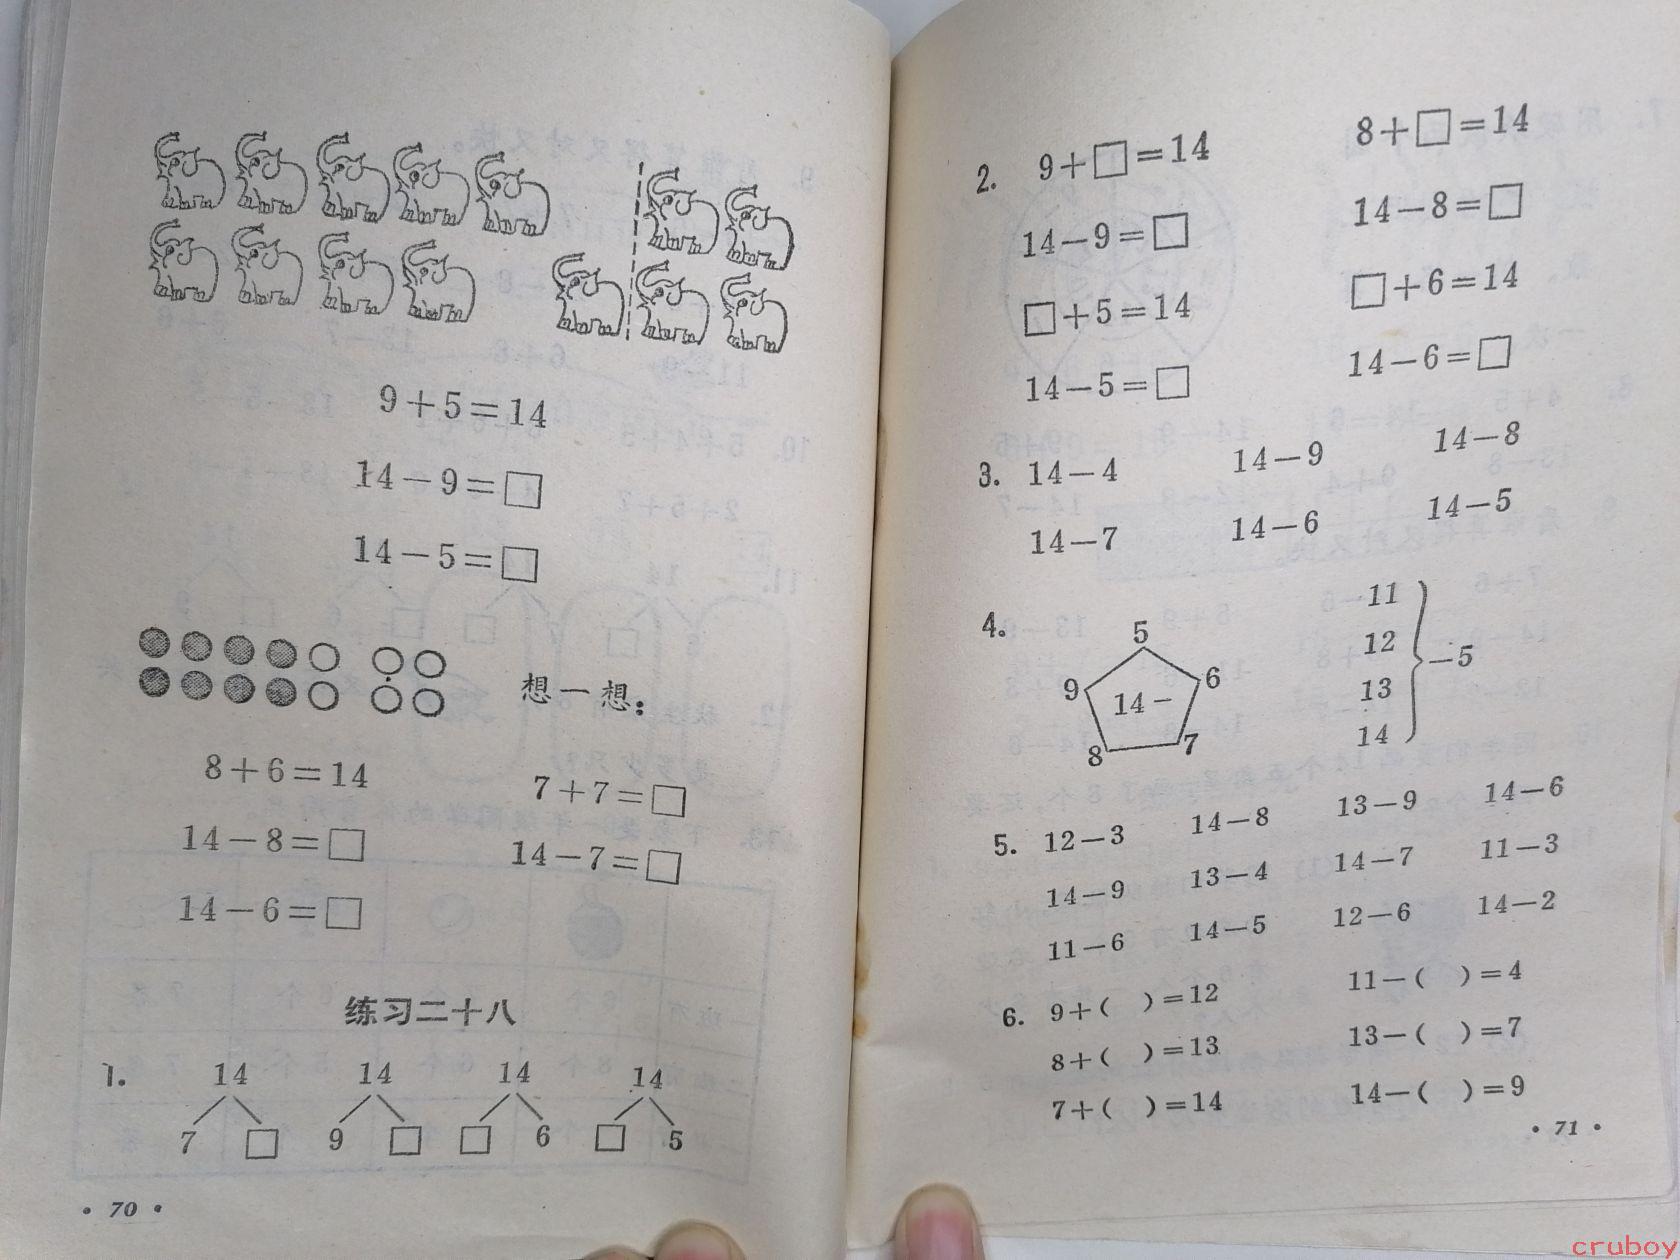 9+5=14
14-9=□
14-5=□
想一想：
8+6=14
14-8=□
14-6=□
7+7=□
14-7=□
练习二十八
1. 14 14 14 14
7 □ 9 □ □ 6 □ 5
• 70 •
2. 9+□=14 8+□=14
14-9=□ 14-8=□
□+5=14 □+6=14
14-5=□ 14-6=□
3. 14-4 14-9 14-8
14-7 14-6 14-5
4. 5
9 6
14-
8 7
11
12
13
14
-5
5. 12-3 14-8 13-9 14-6
14-9 13-4 14-7 11-3
11-6 14-5 12-6 14-2
6. 9+( )=12 11-( )=4
8+( )=13 13-( )=7
7+( )=14 14-( )=9
• 71 •
cruboy